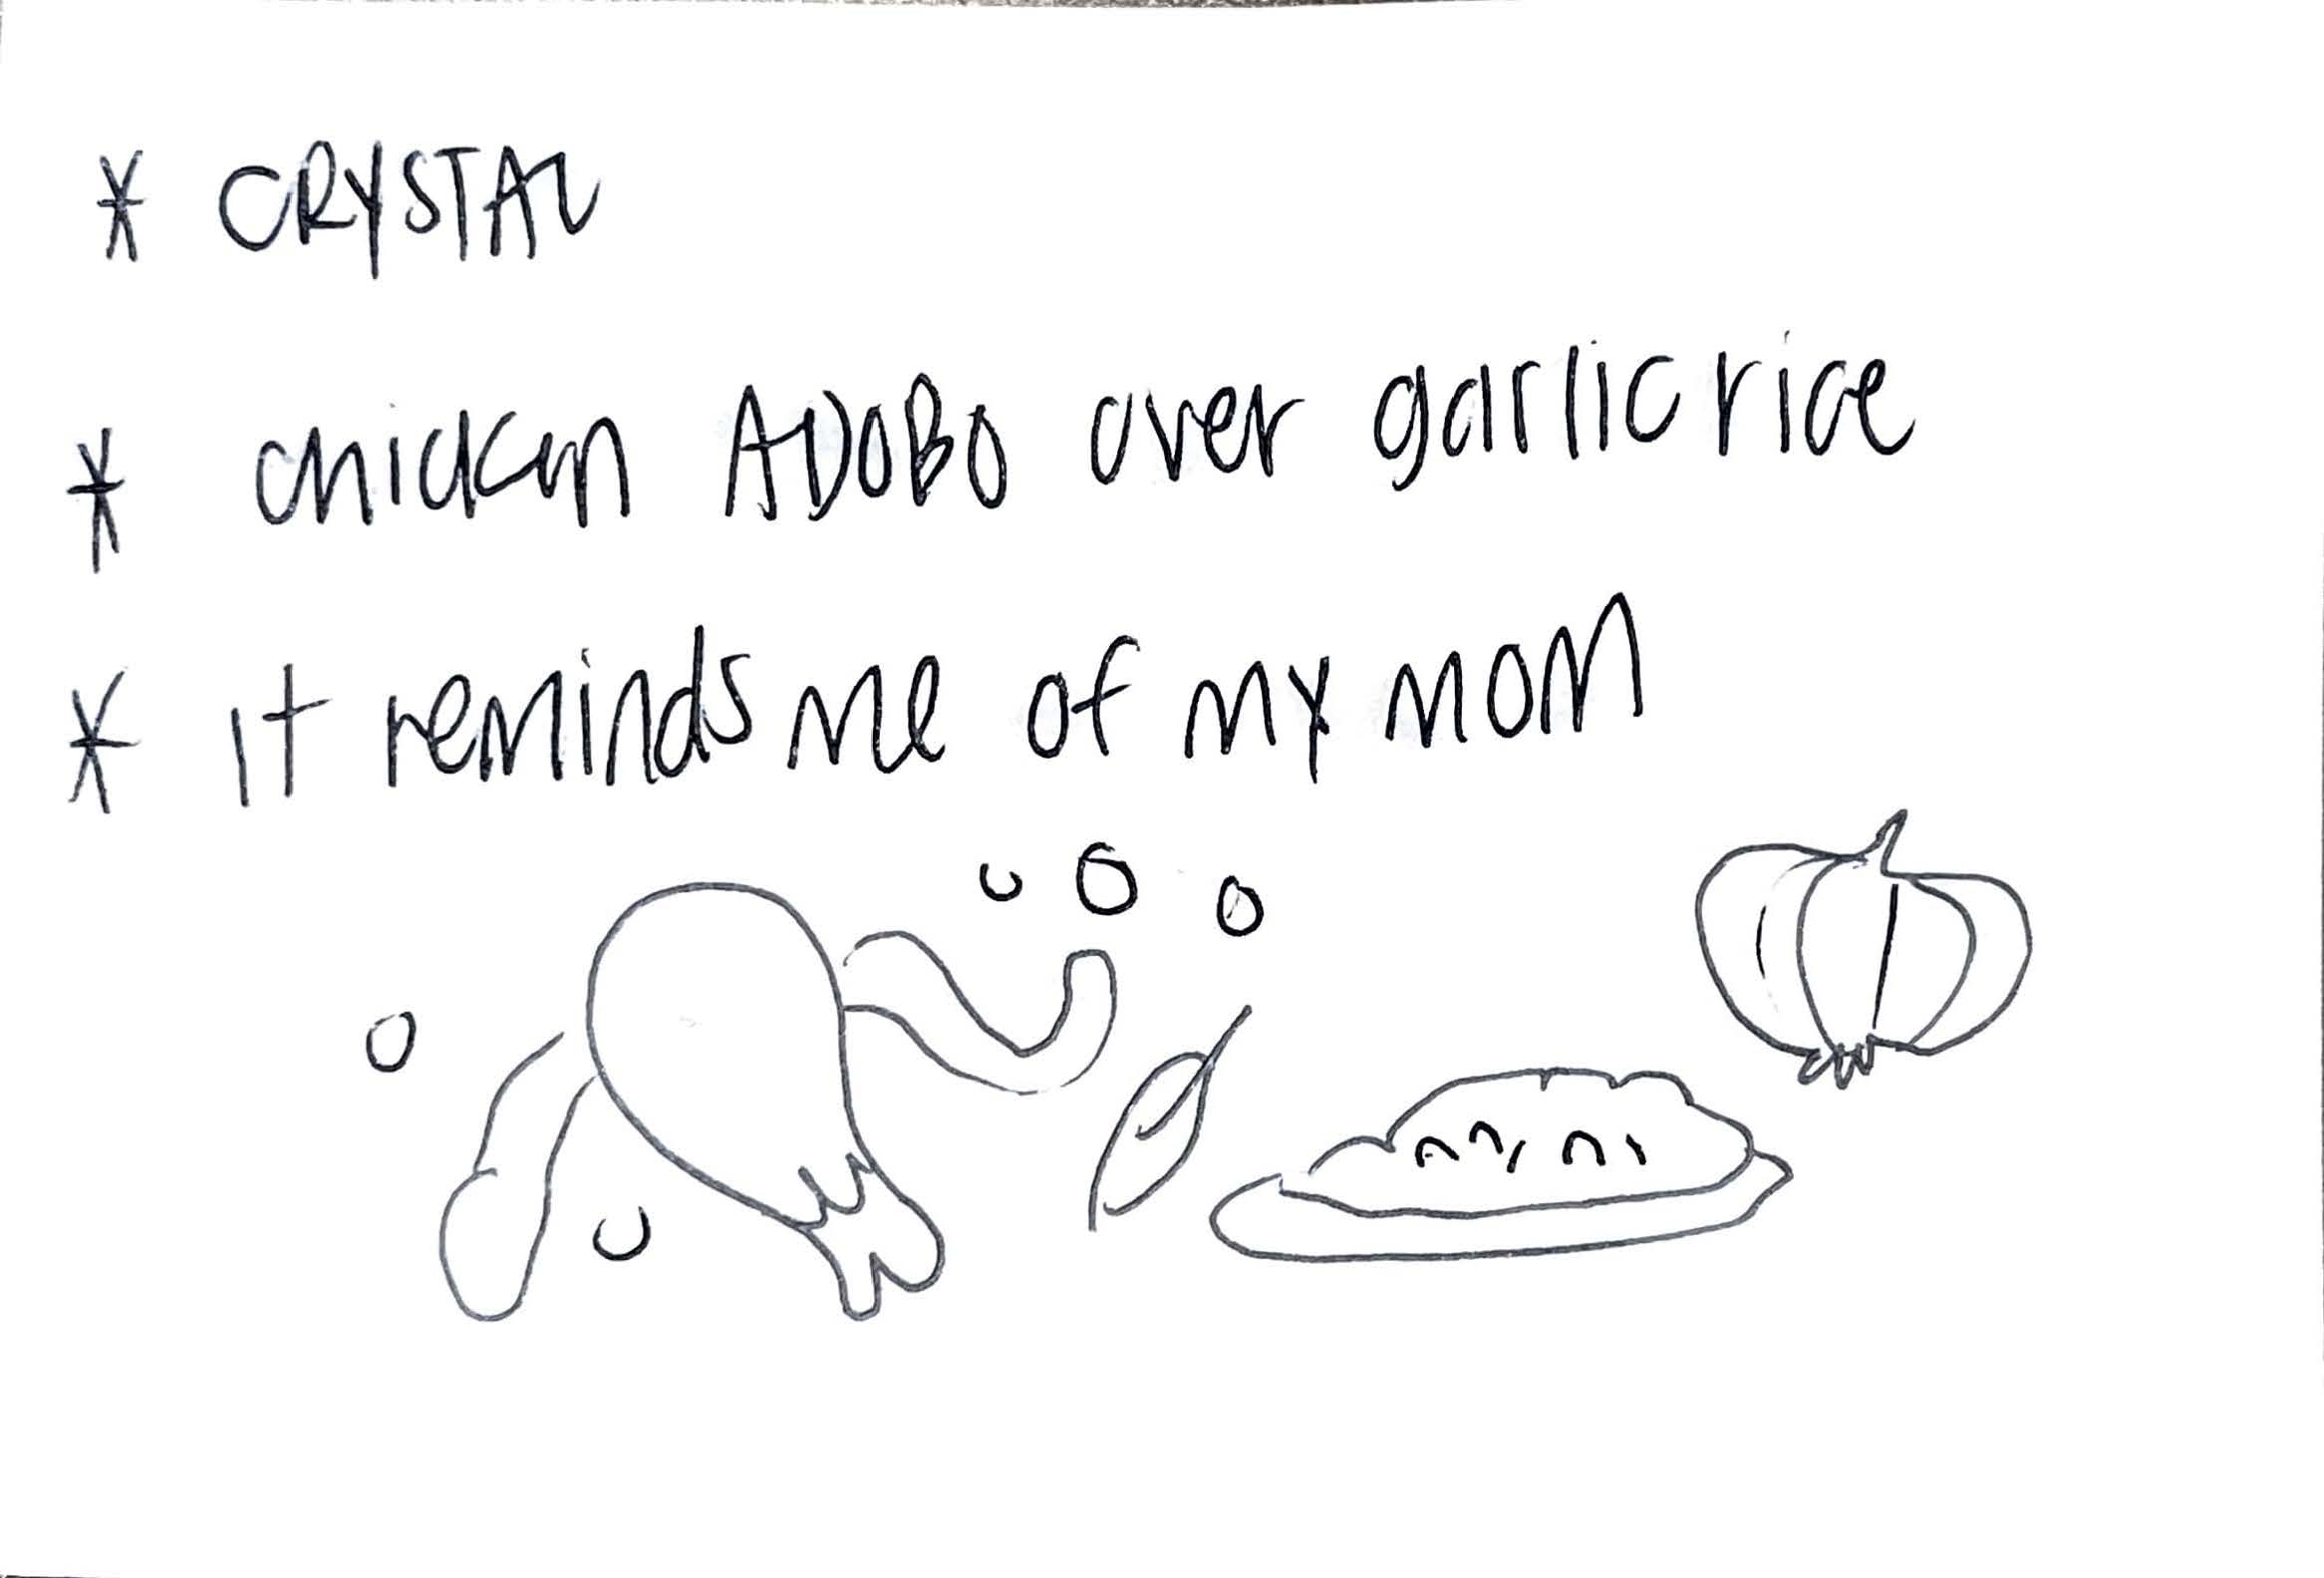 * CRYSTAL
* chicken ADOBO over garlic rice
* It reminds me of my mom